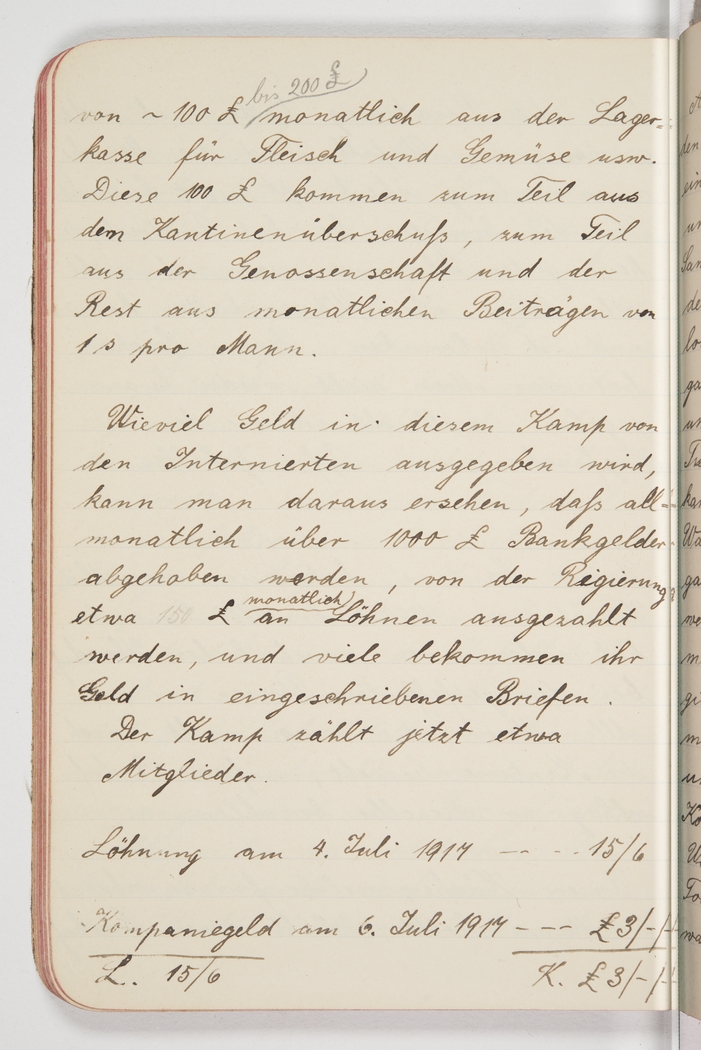 bis 200 £
von ~ 100 £ monatlich aus der Lager=
kasse für Fleisch und Gemüse usw.
Diese 100 £ kommen zum Teil aus
dem Kantinenüberschuß, zum Teil
aus der Genossenschaft und der
Rest aus monatlichen Beiträgen von
1 s pro Mann.
Wieviel Geld in diesem Kamp von
den Internierten ausgegeben wird,
kann man daraus ersehen, daß all=
monatlich über 1000 £ Bankgelder
abgehoben werden, von der Regierung
monatlich
etwa 150 £ an Löhnen ausgezahlt
werden, und viele bekommen ihr
Geld in eingeschriebenen Briefen.
Der Kamp zählt jetzt etwa
Mitglieder.
Löhnung am 4. Juli 1917 -- - - 15/6
Kompaniegeld am 6. Juli 1917 --- £3/-/-
L.. 15/6 K. £3/-/-